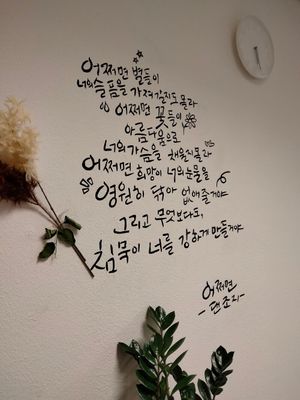 어쩌면 별들이
너의 슬픔을 가져갈지도 몰라
어쩌면 꽃들이
아름다움으로
너의 가슴을 채울지 몰라
어쩌면 희망이 너의 눈물을
영원히 닦아 없애줄거야
그리고 무엇보다도,
침묵이 너를 강하게 만들거야
어쩌면
- 댄 조지 -